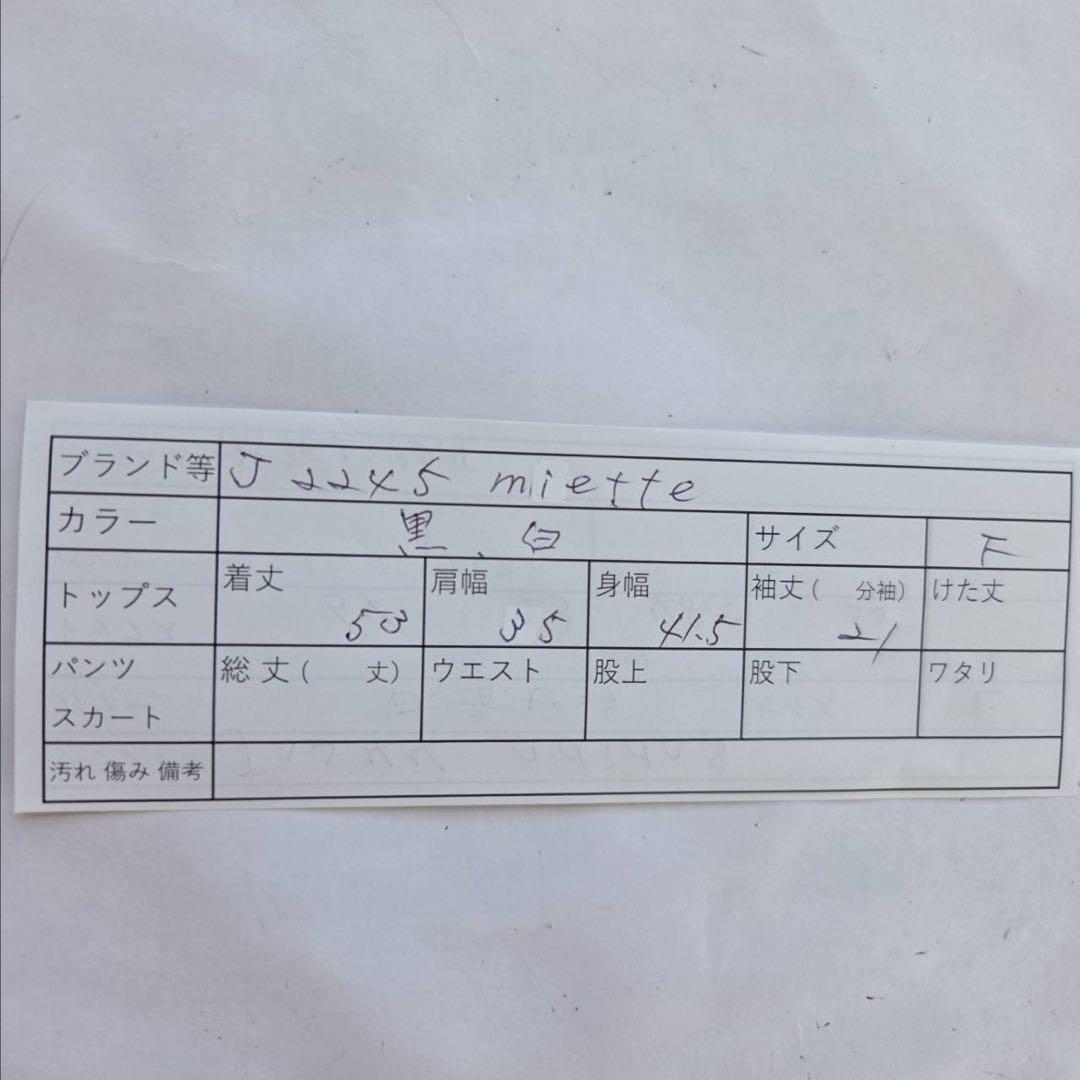 ブランド等 J 2245 miette
カラー 黒、白 サイズ F
トップス 着丈 53 肩幅 35 身幅 41.5 袖丈( 分袖) 21 けた丈
パンツ 総丈( 丈) ウエスト 股上 股下 ワタリ
スカート
汚れ 傷み 備考